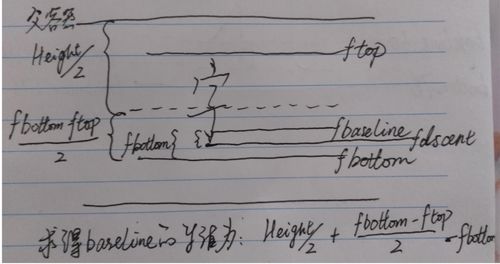 父容器
Height/2
ftop
字
fbottom-ftop/2
fbottom{
fbaseline
fdscent
fbottom
求得baseline的y值为: Height/2 + fbottom-ftop/2 -fbottom